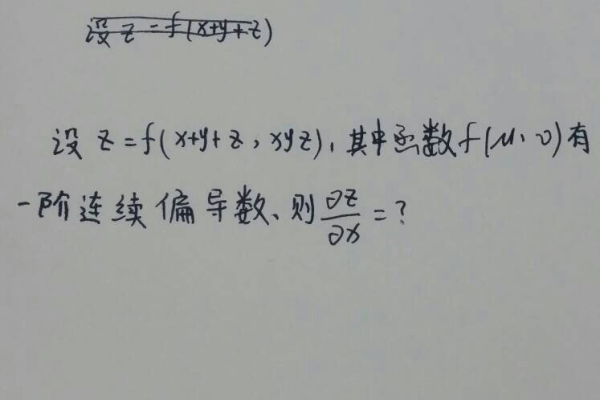 设 z = f(x+y+z)
设 z = f(x+y+z, xyz), 其中函数 f(u, v) 有
一阶连续偏导数、则 ∂z/∂x = ?